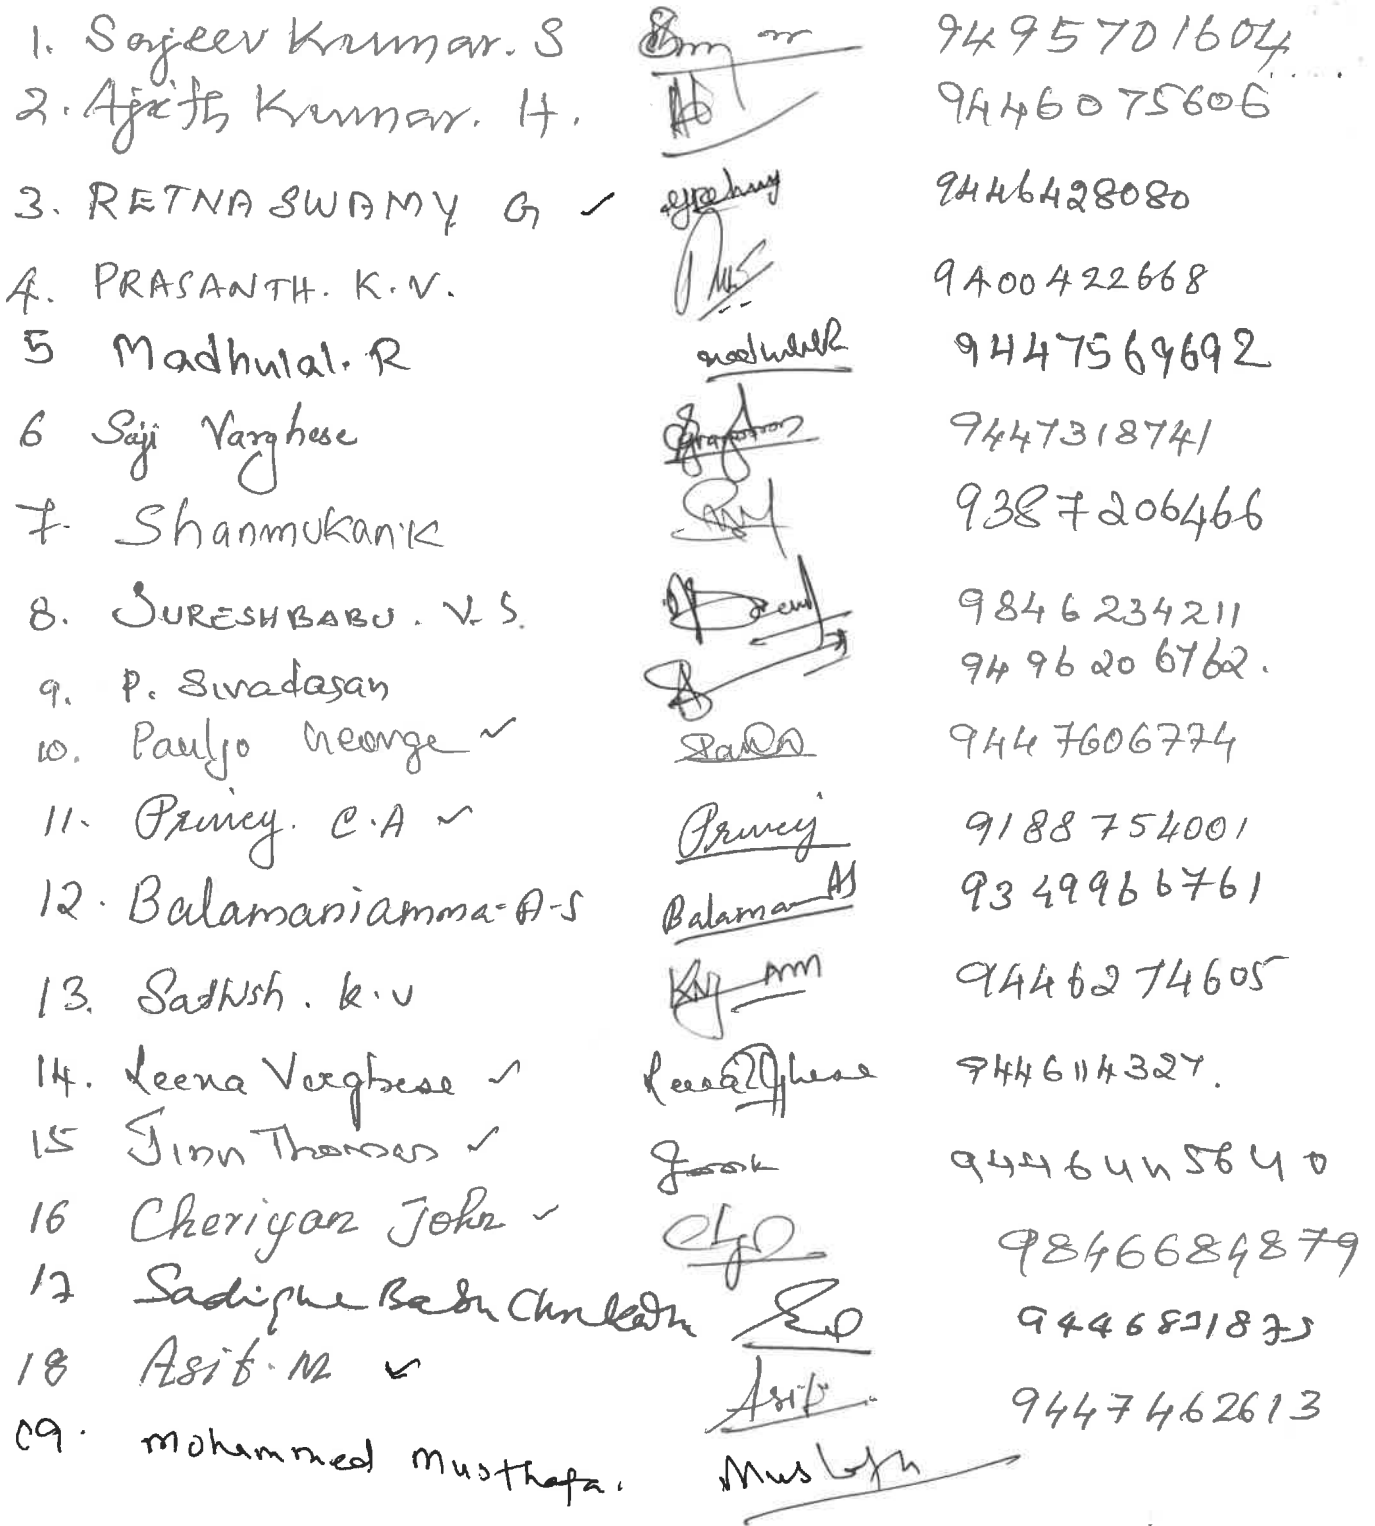 1. Sajeev Kumar. S 9495701604
2. Ajith Kumar. H. 9446075606
3. RETNA SWAMY G ✓ 9446428080
4. PRASANTH. K.V. 9400422668
5 Madhulal. R madhulalR 9447569692
6 Saji Varghese 9447318741
7. Shanmukan.K 9387206466
8. SURESHBABU. V.S. 9846234211
9. P. Sivadasan 9496206762.
10. Pauljo George ✓ 9447606774
11. Princy. C.A ✓ Princy 9188754001
12. Balamaniamma-A-S Balama AS 9349966761
13. Sathish. K.V 9446274605
14. Leena Varghese ✓ 9446114327.
15 Jinn Thomas ✓ 9446445640
16 Cheriyan John ✓ 9846684879
17 Sadique Babu 9446831875
18 Asif. M ✓ Asif 9447462613
09. Mohammed Musthafa. Mustafa